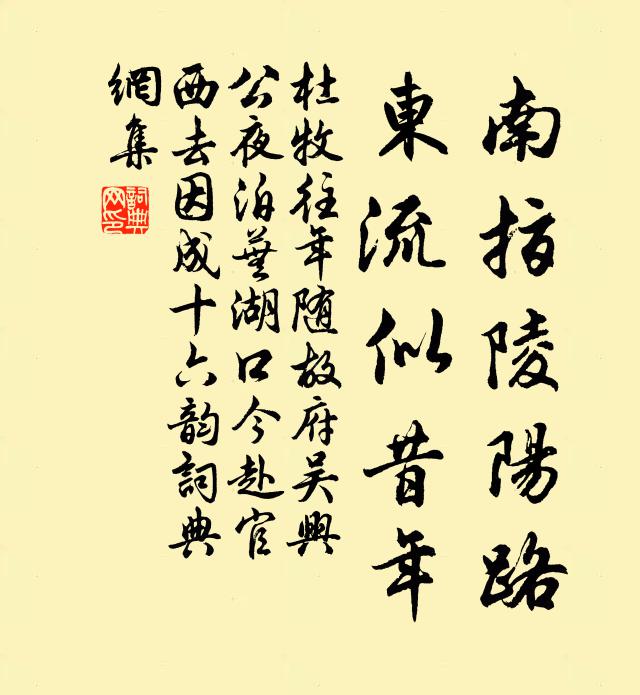 南指陵陽路
東流似昔年
杜牧往年随故府吴興
公夜泊蕪湖口今赴官
西去因成十六韵詞典
網集
詞典
网印